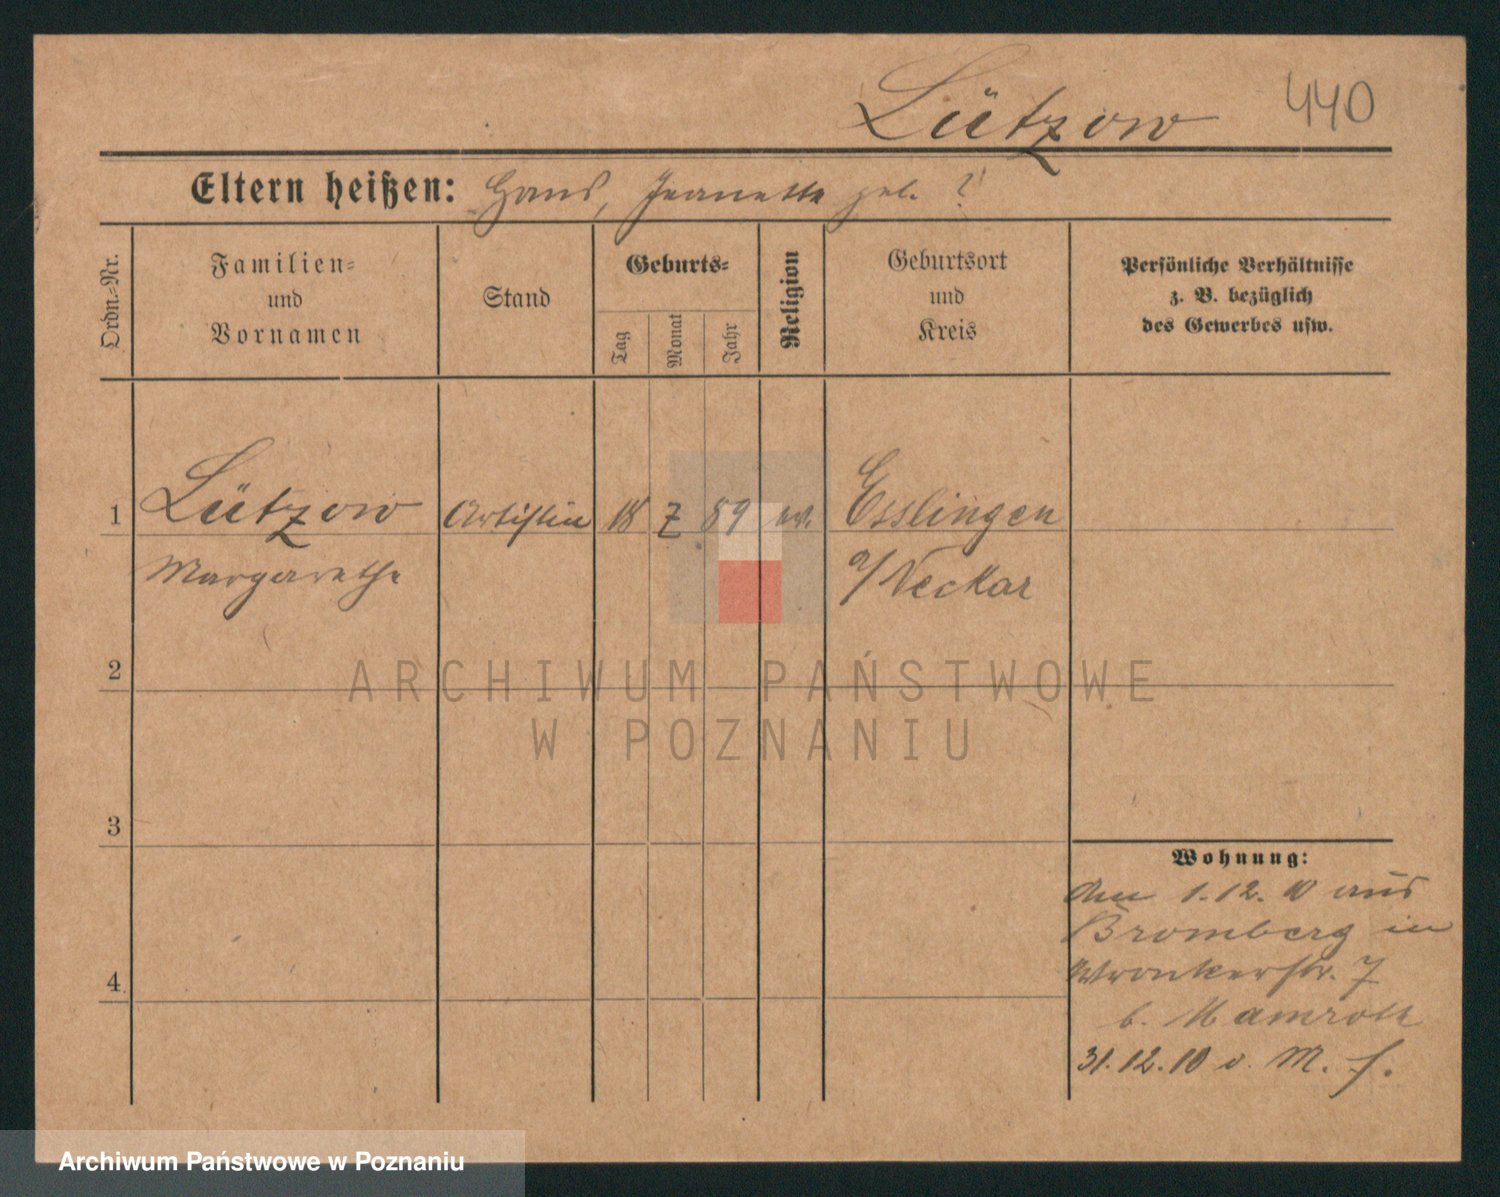 Lützow 440
Eltern heißen: Hans, Jeanette geb. ?
Ordn.-Nr.
Familien-
und
Vornamen
Stand
Geburts-
Tag
Monat
Jahr
Religion
Geburtsort
und
Kreis
Persönliche Verhältnisse
z. B. bezüglich
des Gewerbes usw.
1 Lützow Artistin 18 7 89 ev. Esslingen
Margarethe a/Neckar
2
ARCHIWUM PAŃSTWOWE
W POZNANIU
3
Wohnung:
den 1.12.10 aus
Bromberg in
Wronkerstr. 7
b. Mamroth
31.12.10 o. M. f.
4
Archiwum Państwowe w Poznaniu